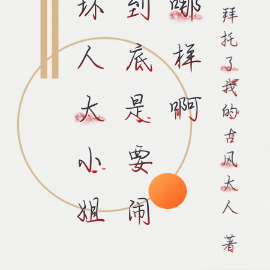 坏人大小姐
到底是要闹
哪样啊
拜托了我的古风大人 著